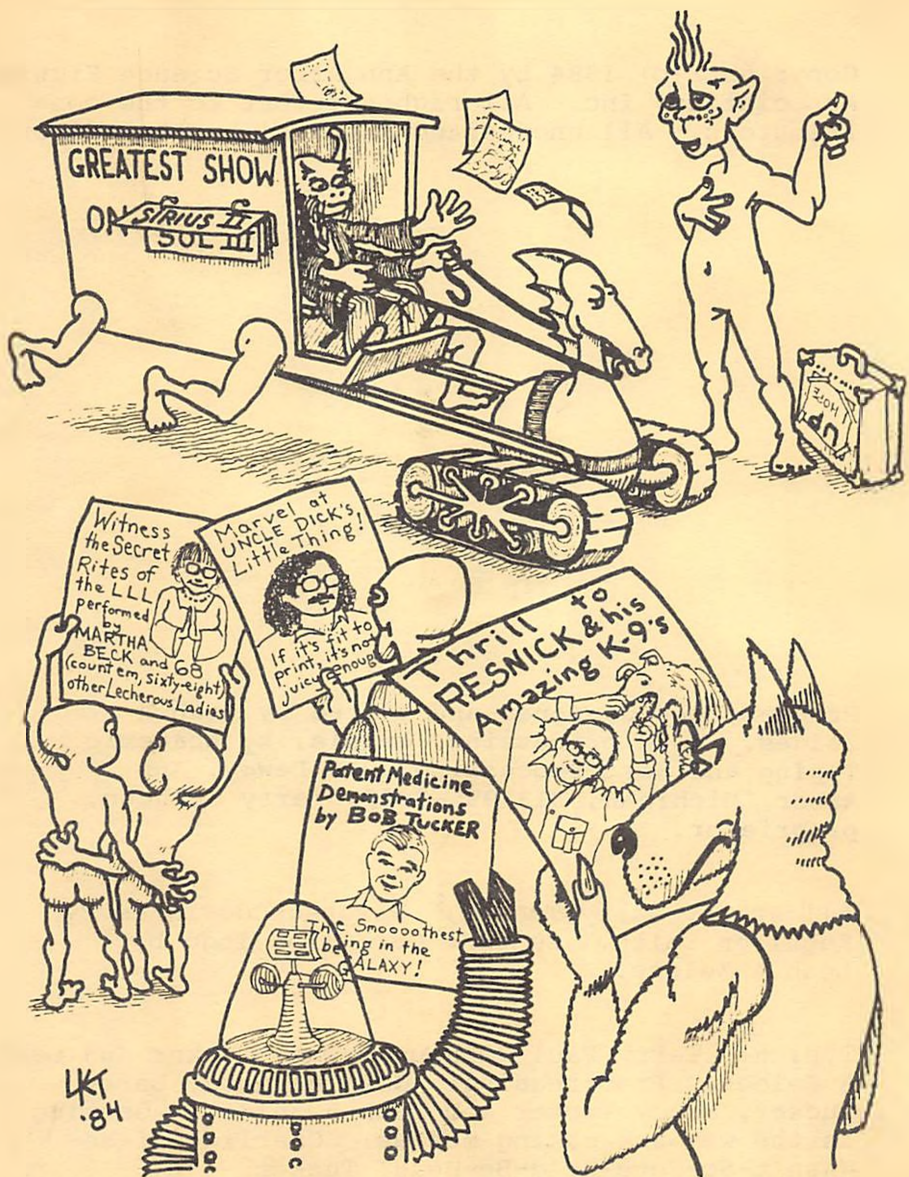 GREATEST SHOW
ON SIRIUS II
SOL III
UP
I HOPE
Witness
the Secret
Rites of
the LLL
performed
by
MARTHA
BECK and 68
(count em, sixty-eight)
other Lecherous Ladies
Marvel at
UNCLE DICK'S
Little Thing!
If it's fit to
print, it's not
juicy enoug
Thrill to
RESNICK & his
Amazing K-9's
Patent Medicine
Demonstrations
by BOB TUCKER
The Smooooothest
being in the
GALAXY!
LKT
'84